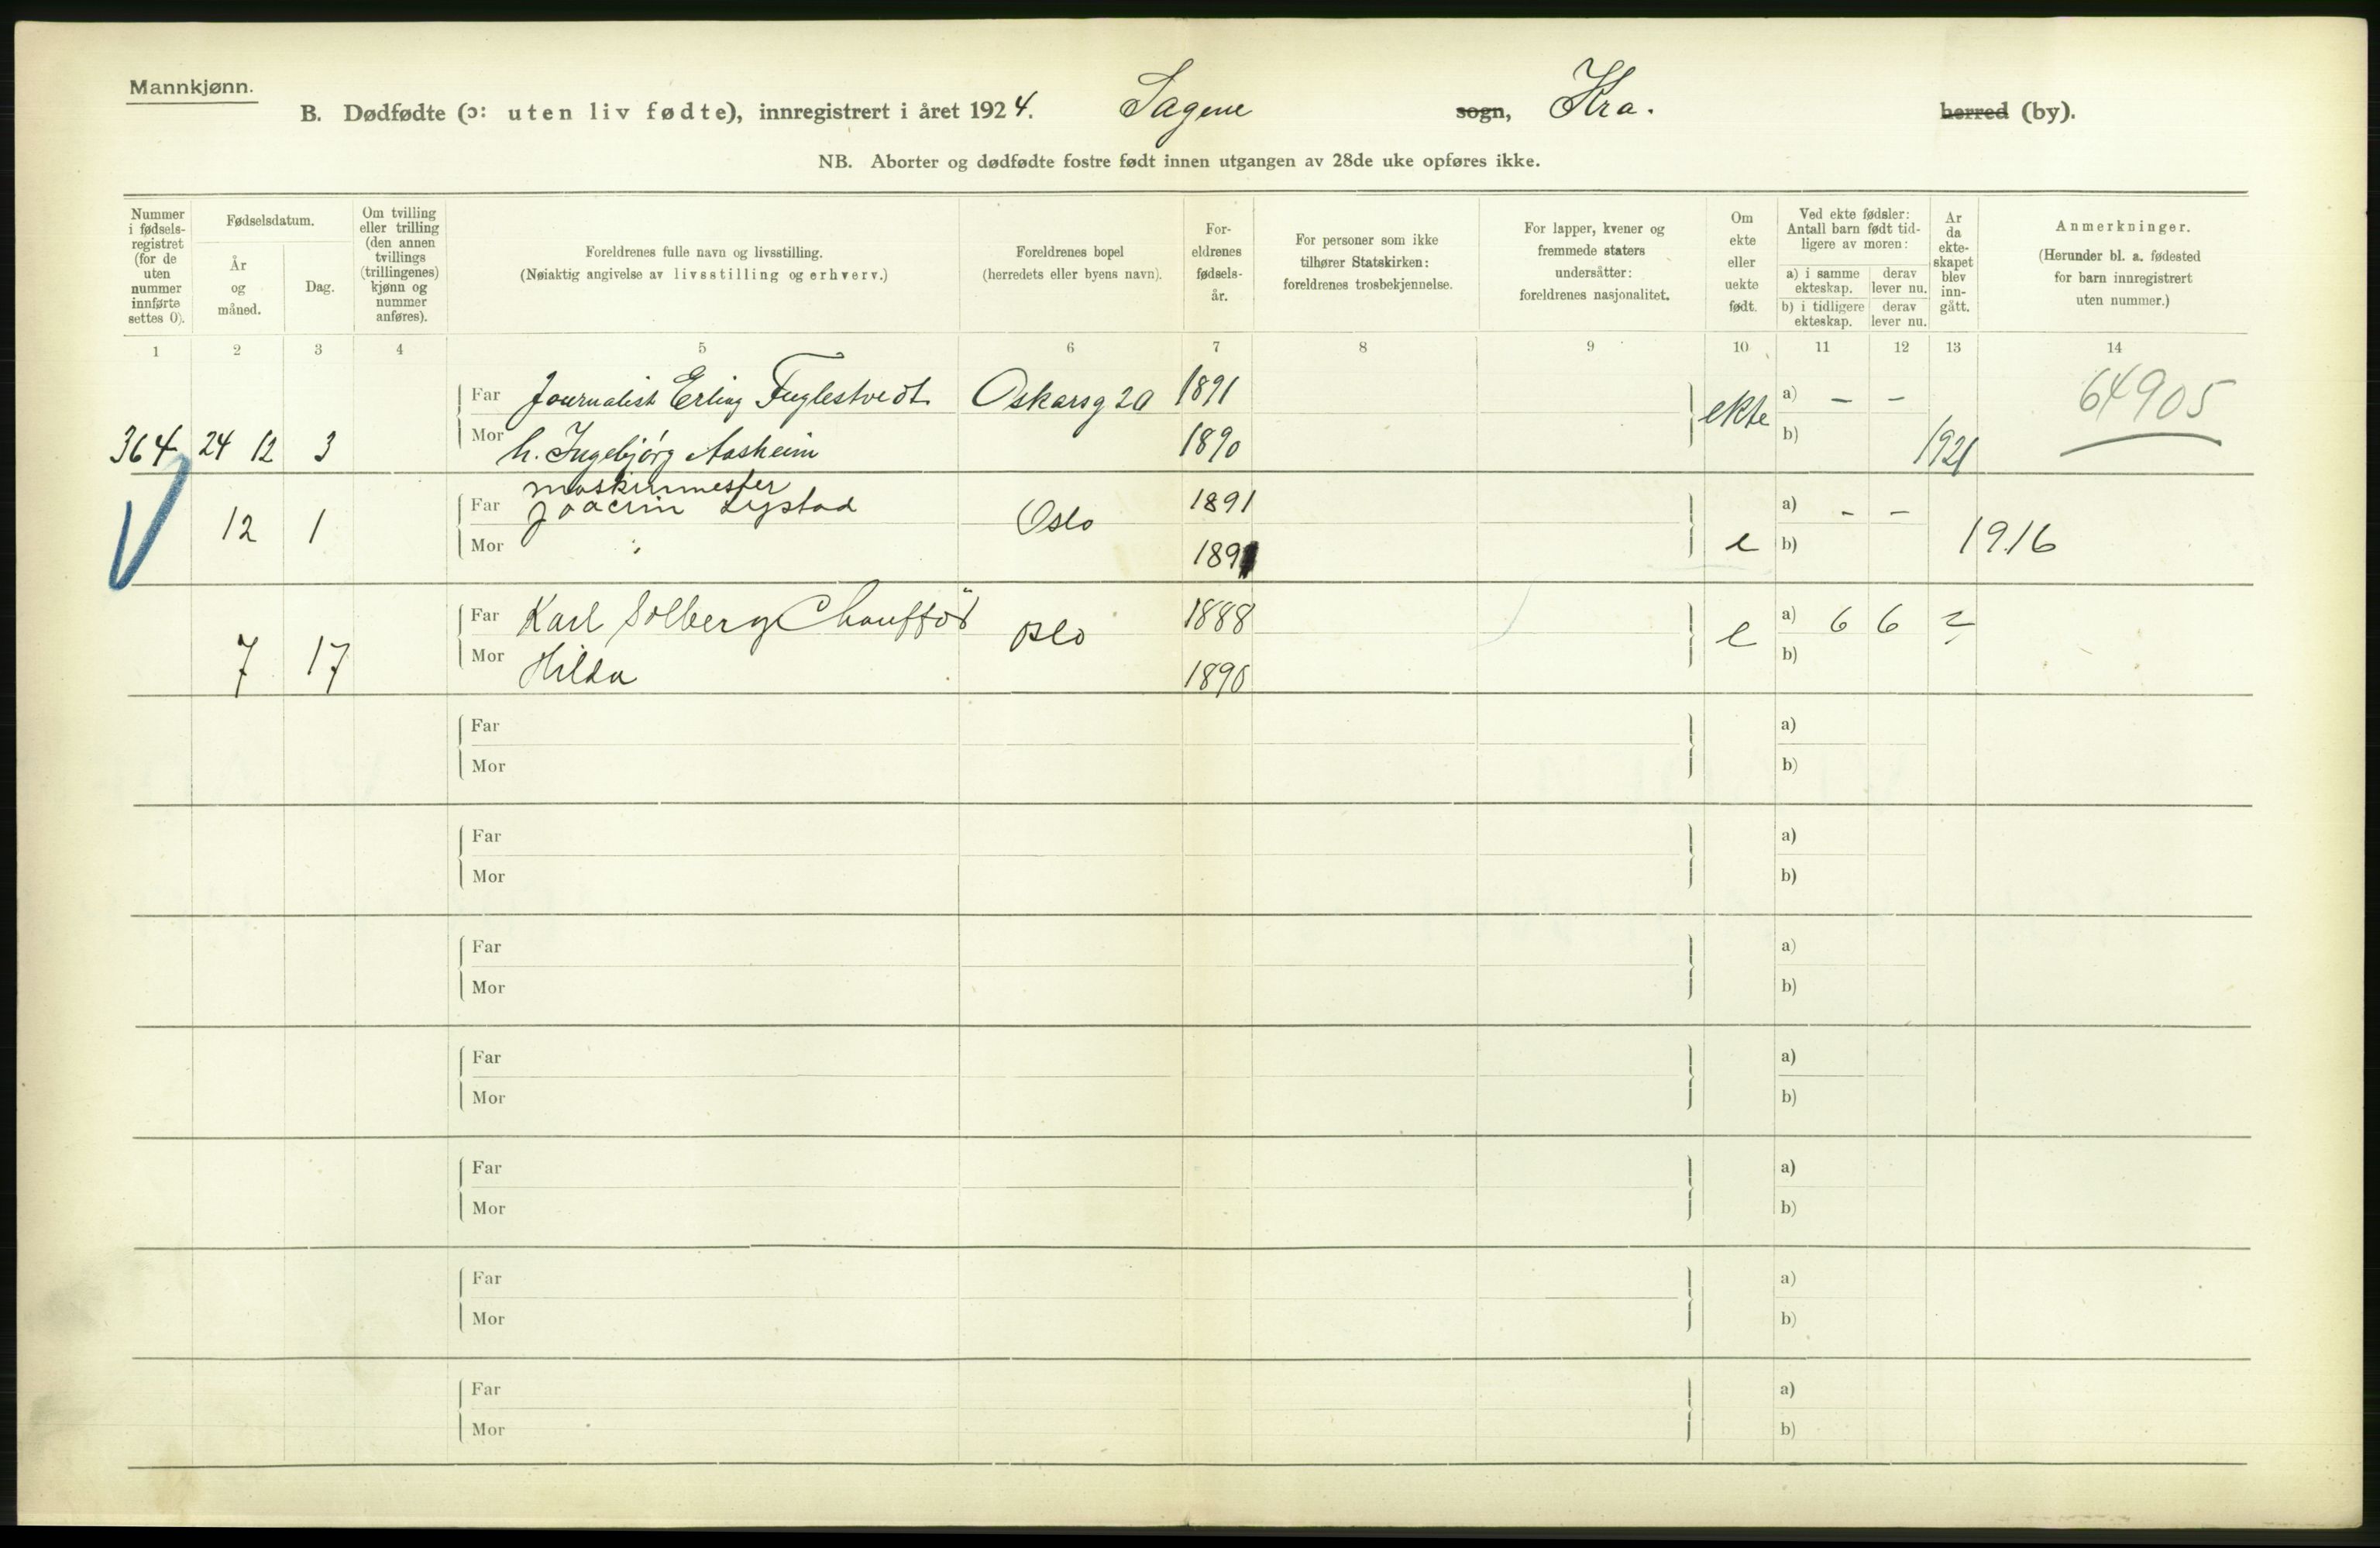 Mannkjønn.
B. Dødfødte (ɔ: uten liv fødte), innregistrert i året 1924. Sagene sogn, Kra. herred (by).
NB. Aborter og dødfødte fostre født innen utgangen av 28de uke opføres ikke.
Nummer i fødsels-registret (for de uten nummer innførte settes 0).
Fødselsdatum.
År og måned.
Dag.
Om tvilling eller trilling (den annen tvillings (trillingenes) kjønn og nummer anføres).
Foreldrenes fulle navn og livsstilling.
(Nøiaktig angivelse av livsstilling og erhverv.)
Foreldrenes bopel
(herredets eller byens navn).
For-eldrenes fødsels-år.
For personer som ikke tilhører Statskirken: foreldrenes trosbekjennelse.
For lapper, kvener og fremmede staters undersåtter: foreldrenes nasjonalitet.
Om ekte eller uekte født.
Ved ekte fødsler: Antall barn født tid-ligere av moren:
a) i samme ekteskap.
derav lever nu.
b) i tidligere ekteskap.
derav lever nu.
År da ekte-skapet blev inn-gått.
Anmerkninger.
(Herunder bl. a. fødested for barn innregistrert uten nummer.)
1 2 3 4 5 6 7 8 9 10 11 12 13 14
Far Journalist Erling Fuglestvedt Oskarsg 20 1891 ekte a) – – 64905
364 24 12 3 Mor h. Ingebjørg Aasheim 1890 b) 1921
maskinmester
Far Joacim Lystad 1891 a) – –
12 1 Mor Oslo 1891 e b) 1916
Far Karl Solberg Chauffør Oslo 1888 e a) 6 6 ?
7 17 Mor Hilda 1890 b)
Far a)
Mor b)
Far a)
Mor b)
Far a)
Mor b)
Far a)
Mor b)
Far a)
Mor b)
Far a)
Mor b)
Far a)
Mor b)